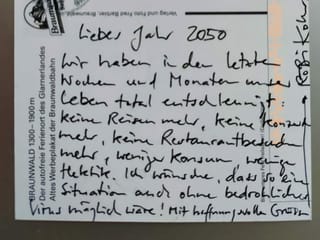 Verlag und Foto Fred Bertier, Braunwald
Liebes Jahr 2050
Wir haben in den letzten
Wochen und Monaten unser
Leben total entschleunigt:
keine Reisen mehr, keine Konzerte
mehr, keine Restaurantbesuche
mehr, weniger Konsum, weniger
Hektik. Ich wünsche, dass so ein
Situation auch ohne bedrohliches
Virus möglich wäre! Mit hoffnungsvollen Grüssen
BRAUNWALD 1300–1900 m
Der autofreie Ferienort des Glarnerlandes
Altes Werbeplakat der Braunwaldbahn